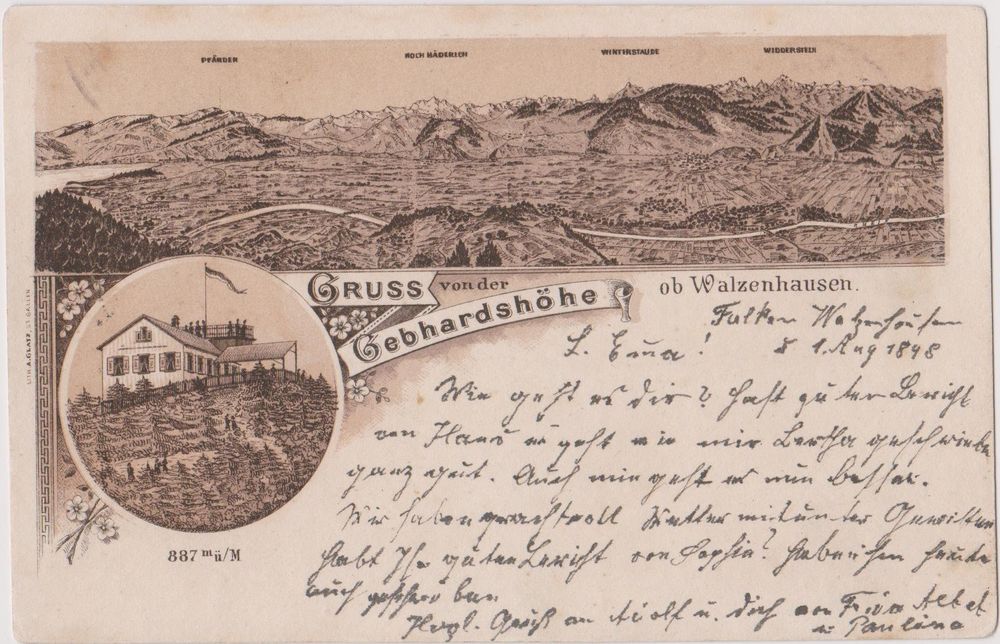 PFÄNDER HOCH HÄDERICH WINTERSTAUDE WIDDERSTEIN
GRUSS von der
Gebhardshöhe
ob Walzenhausen.
LITH. A. GLATZ, ST. GALLEN
887 m ü/M
Falken Walzenhausen
d 1. Aug 1898
L. Emma!
Wie geht es dir? Hast guten Bericht
von Hans es geht wie mir Bertha geschrieben
ganz gut. Auch mir geht es nun besser.
Wir haben prachtvoll Wetter mitunter Gewitter
Habt Ihr guten Bericht von Sophie? Habe ihr heute
auch geschrieben
Herzl. Grüße an Adolf u. dich von Albet
u Paulina